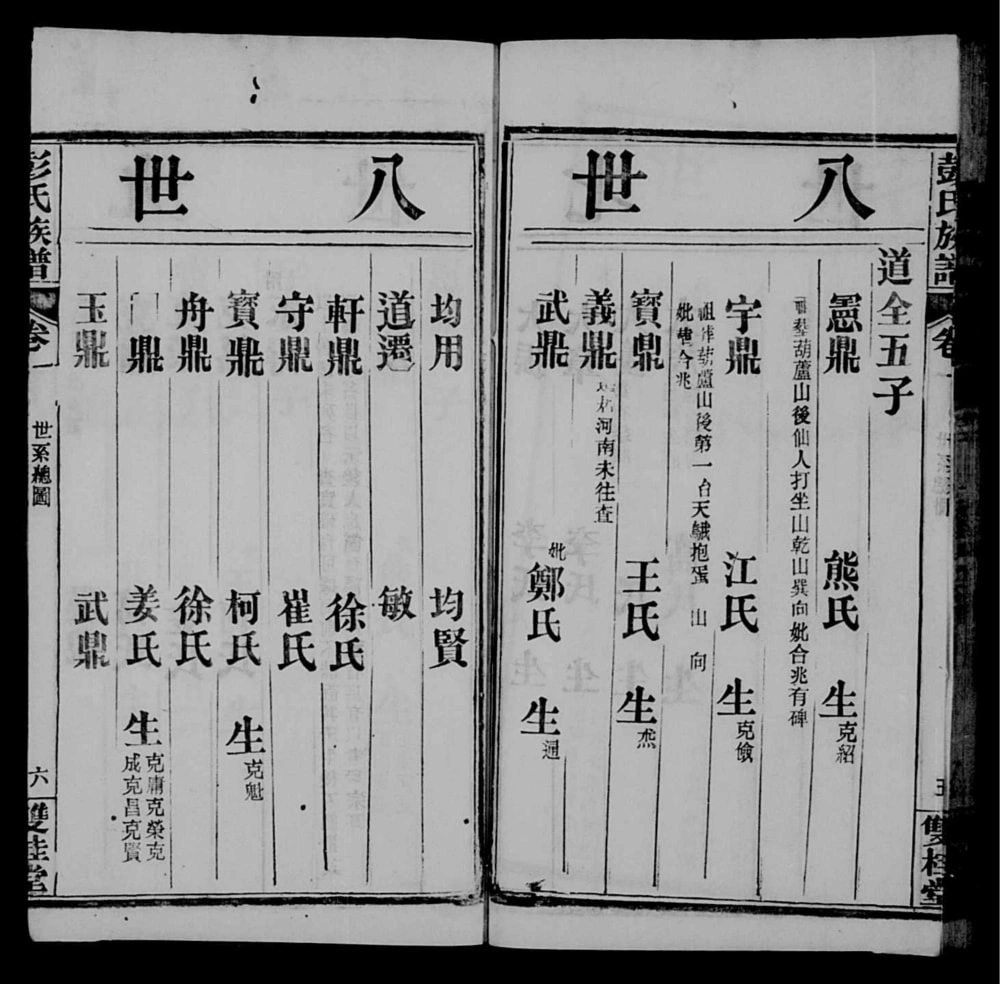 彭氏族譜
卷一
五
雙桂堂
八世
道全五子
憲鼎 熊氏 生克紹
葬葫蘆山後仙人打坐山乾山巽向妣合兆有碑
宇鼎 江氏 生克儉
祖葬葫蘆山後第一台天鵝抱蛋 山 向
妣 合兆
寶鼎 王氏 生
義鼎 河南未往查
武鼎 妣鄭氏 生通
八世
均用 均賢
道遷 敏
軒鼎 徐氏
守鼎 崔氏
寶鼎 柯氏 生克魁
舟鼎 徐氏
鼎 姜氏 生克庸克榮克
成克昌克賢
玉鼎 武鼎
彭氏族譜
卷一
世系總圖
六
雙桂堂